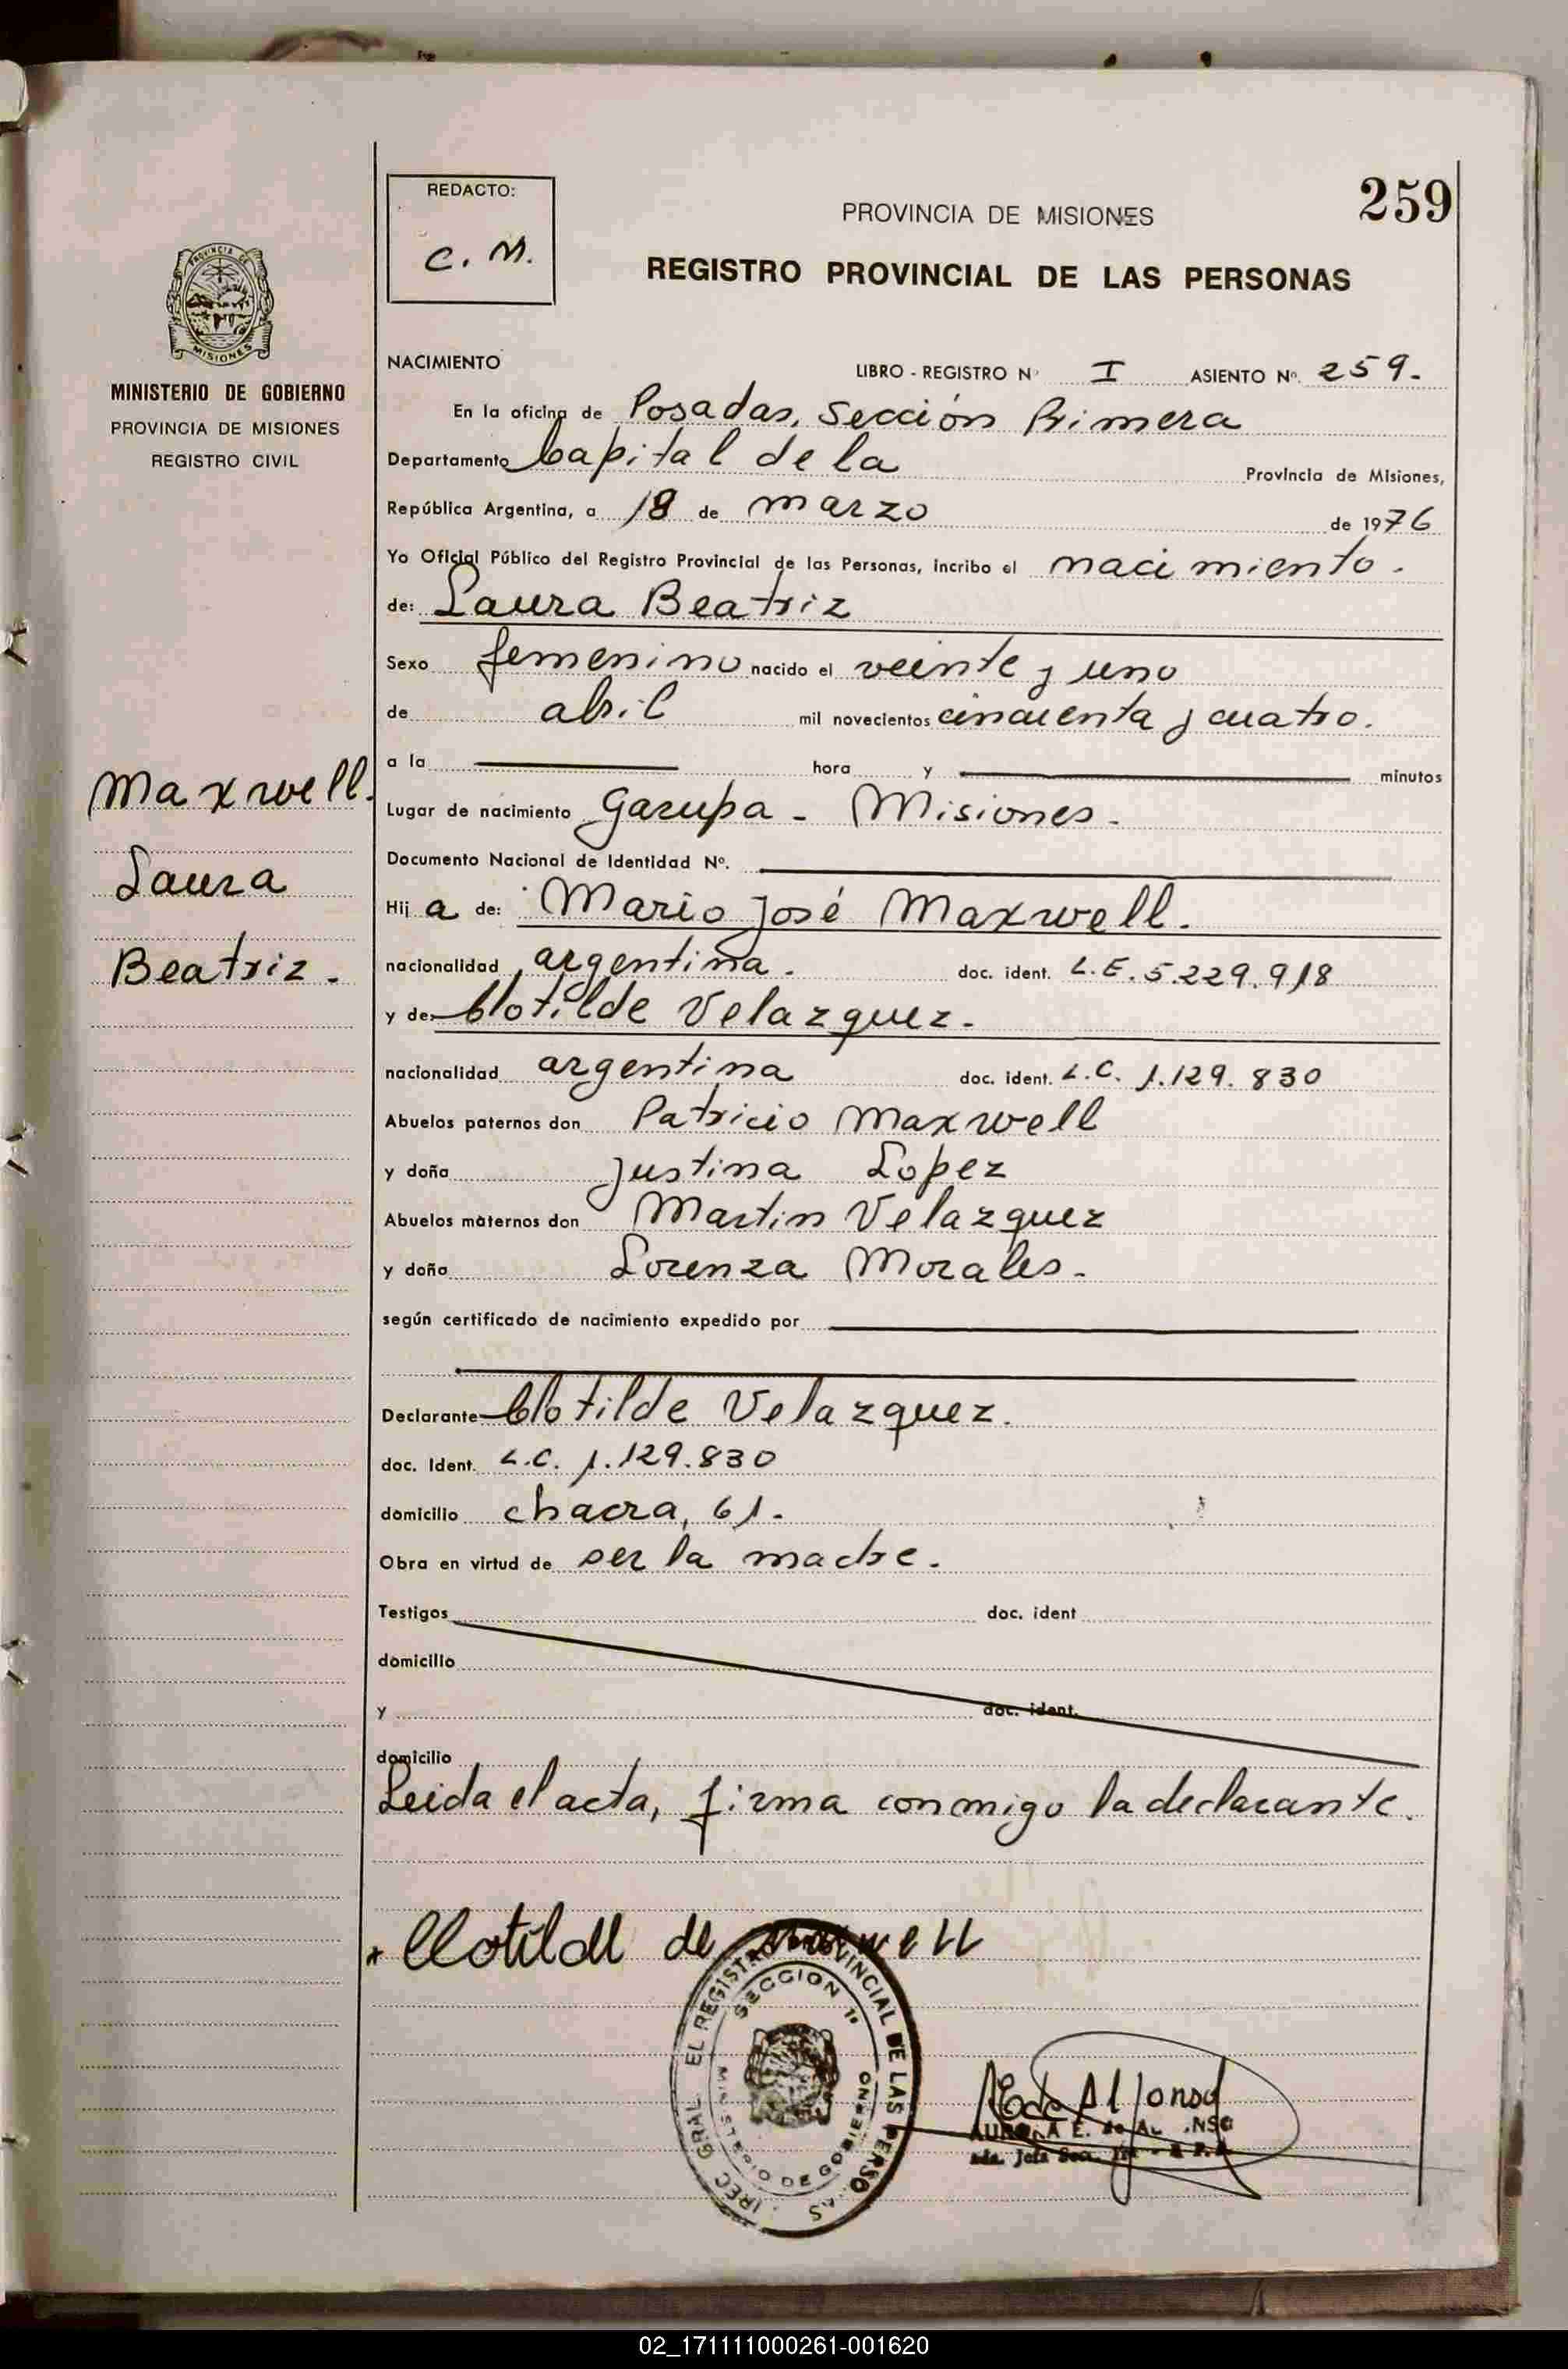 259
REDACTO:
C. M.
PROVINCIA DE MISIONES
REGISTRO PROVINCIAL DE LAS PERSONAS
PROVINCIA DE
MISIONES
MINISTERIO DE GOBIERNO
PROVINCIA DE MISIONES
REGISTRO CIVIL
Maxwell.
Laura
Beatriz.-
NACIMIENTO LIBRO - REGISTRO Nº I ASIENTO Nº. 259.-
En la oficina de Posadas, Sección Primera
Departamento Capital de la Provincia de Misiones,
República Argentina, a 18 de marzo de 1976
Yo Oficial Público del Registro Provincial de las Personas, incribo el nacimiento.
de: Laura Beatriz
Sexo femenino nacido el veinte y uno
de abril mil novecientos cincuenta y cuatro.
a la hora y minutos
Lugar de nacimiento Garupa - Misiones.-
Documento Nacional de Identidad Nº.
Hij a de: Mario José Maxwell.
nacionalidad argentina. doc. ident. L.E. 5.229.918
y de: Clotilde Velazquez.
nacionalidad argentina doc. ident. L.C. 1.129.830
Abuelos paternos don Patricio Maxwell
y doña Justina Lopez
Abuelos maternos don Martin Velazquez
y doña Lorenza Morales.-
según certificado de nacimiento expedido por
Declarante Clotilde Velazquez.
doc. Ident. L.C. 1.129.830
domicilio chacra, 61.-
Obra en virtud de ser la madre.
Testigos doc. ident
domicilio
y doc. ident.
domicilio
Leida el acta, firma conmigo la declarante.
Clotilde de Maxwell
EL REGISTRO PROVINCIAL DE LAS PERSONAS
SECCION 1ª
MINISTERIO DE GOBIERNO
GRAL.
Alfonso
02_171111000261-001620